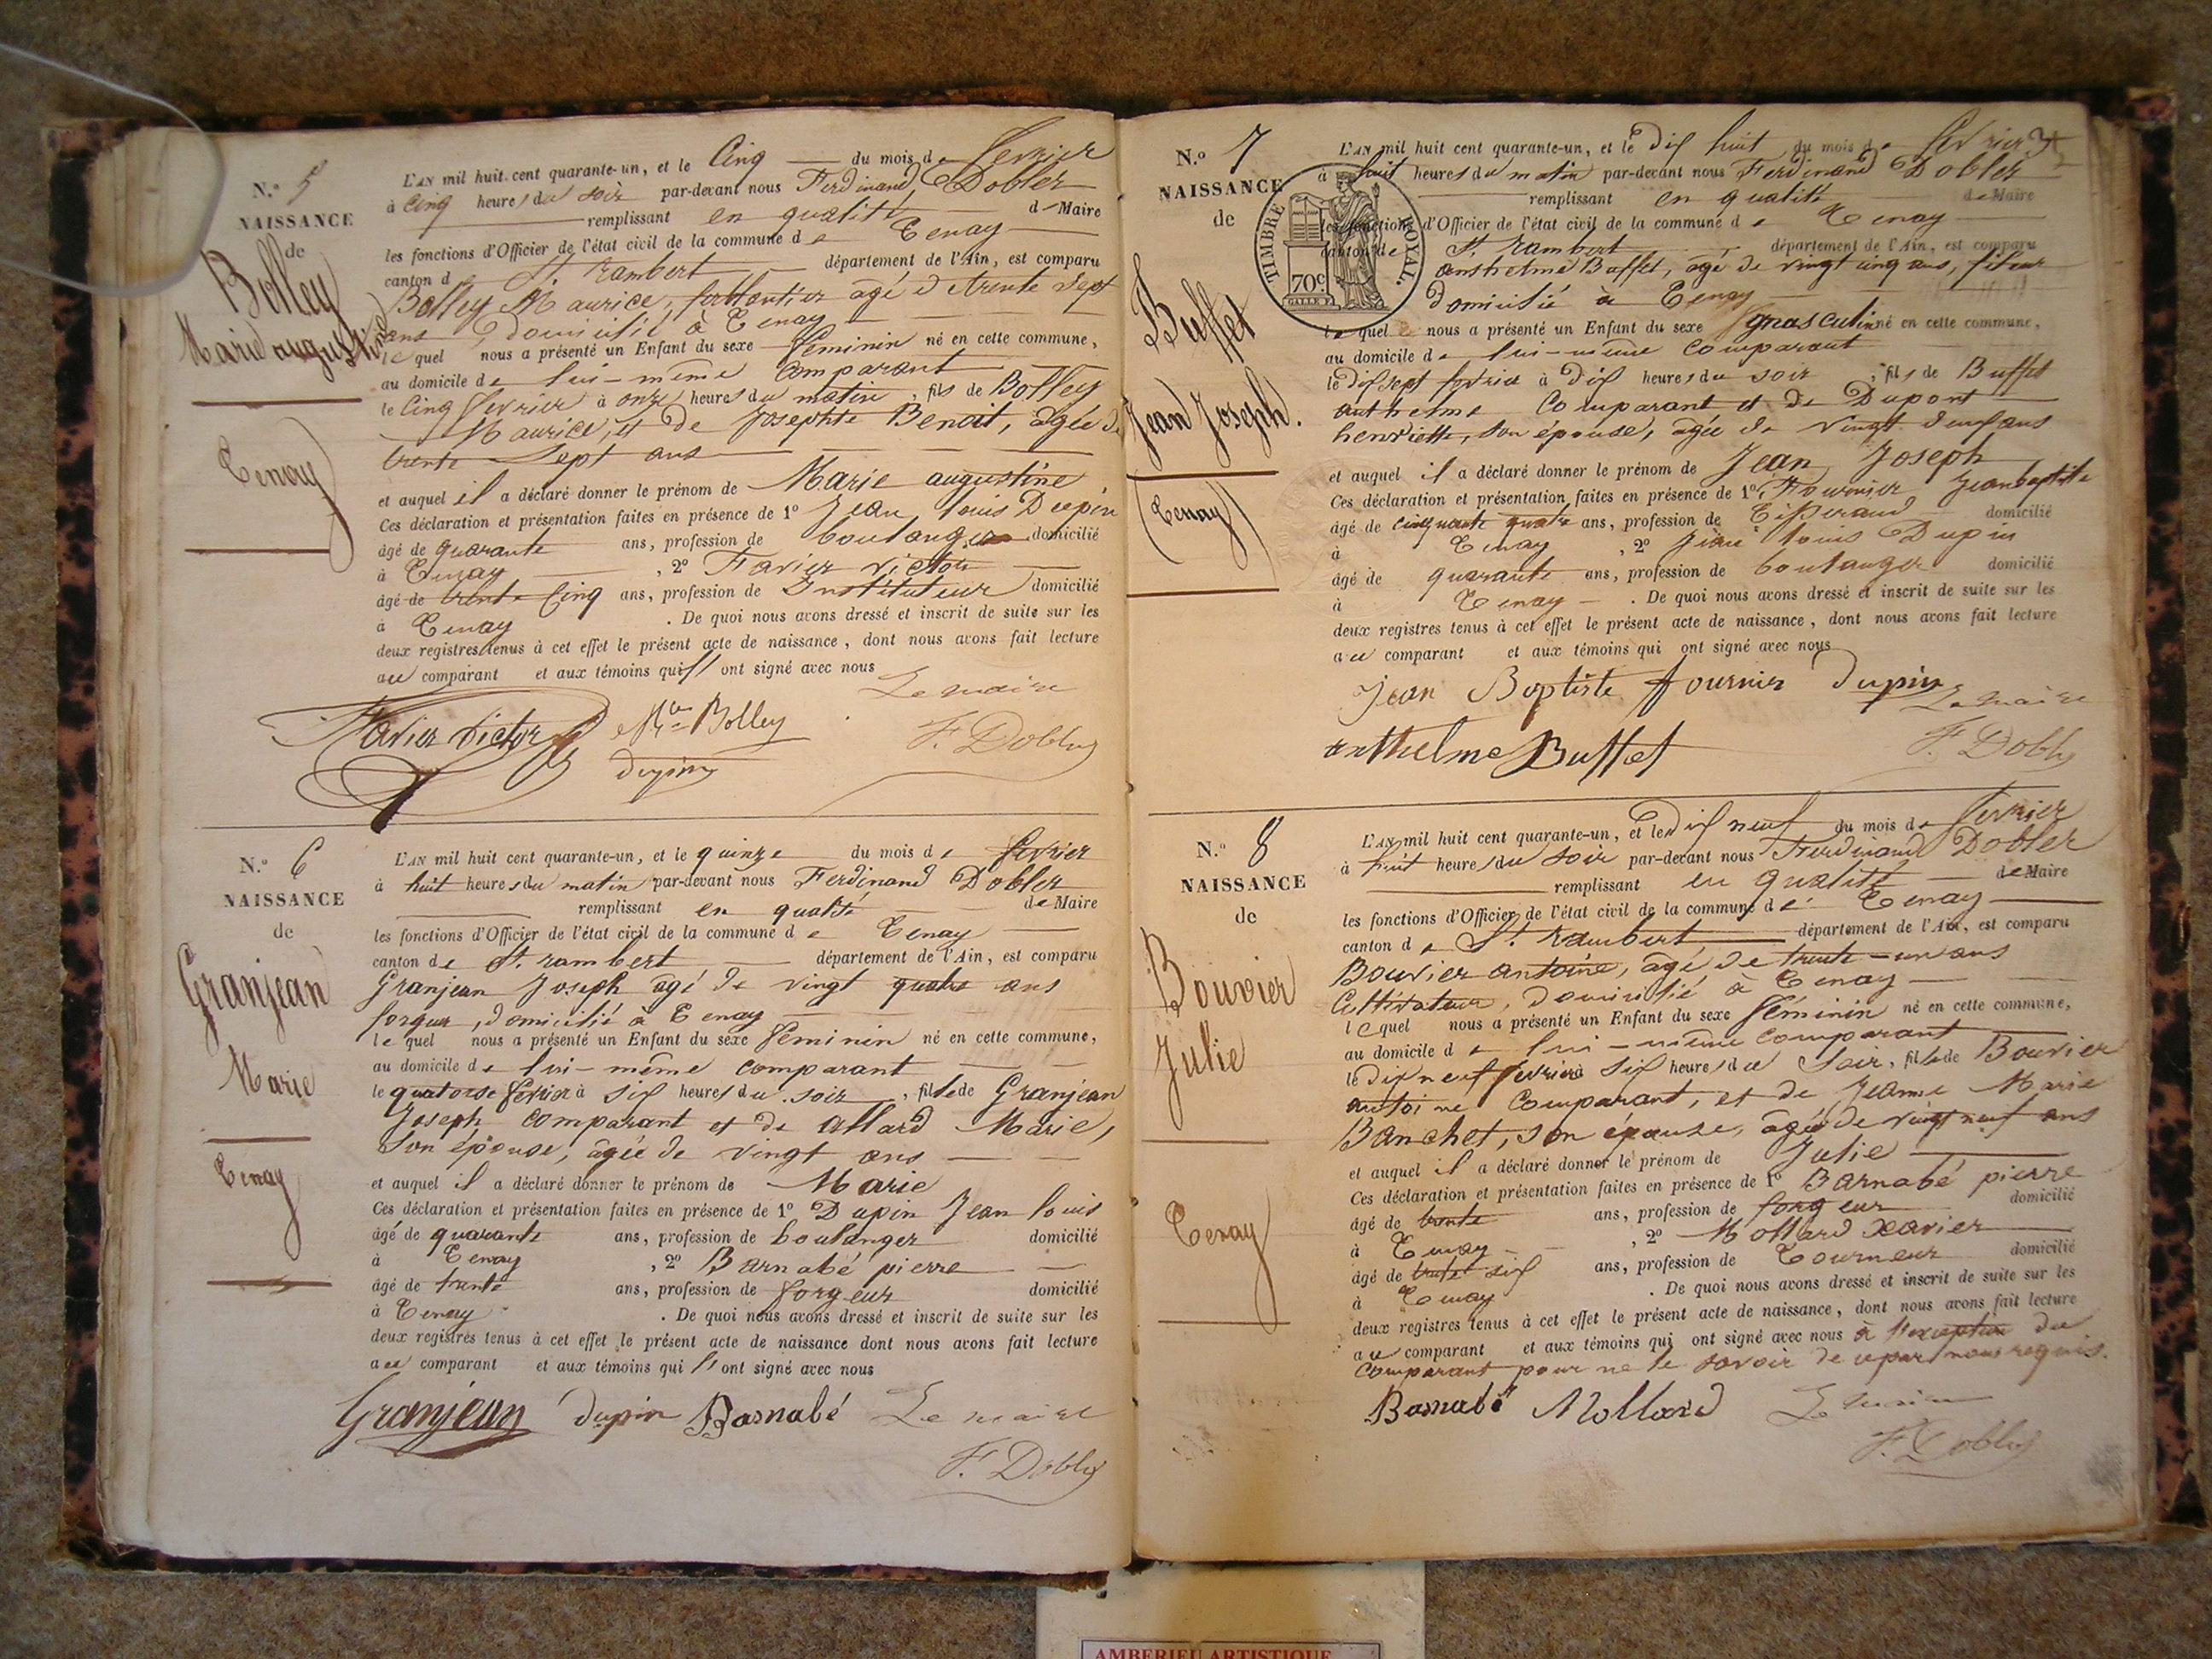 N.º 5
NAISSANCE
de
Bolley
Marie augustine
Tenay
L'AN mil huit cent quarante-un, et le Cinq du mois de fevrier
à Cinq heures du soir par-devant nous Ferdinand Dobler
remplissant en qualité de Maire
les fonctions d'Officier de l'état civil de la commune de Tenay
canton de St. rambert département de l'Ain, est comparu
Bolley Maurice, age de trente Sept
ans, domicilié à Tenay
le quel nous a présenté un Enfant du sexe féminin né en cette commune,
au domicile de lui-même Comparant
le Cinq fevrier à onze heures du matin, fils de Bolley
Maurice, et de Josephte Benoit, agée de
trente Sept ans
et auquel il a déclaré donner le prénom de Marie augustine
Ces déclaration et présentation faites en présence de 1º Jean louis Dupin
âgé de quarante ans, profession de boulanger domicilié
à Tenay, 2º Favier victor
âgé de trente Cinq ans, profession de Instituteur domicilié
à Tenay. De quoi nous avons dressé et inscrit de suite sur les
deux registres tenus à cet effet le présent acte de naissance, dont nous avons fait lecture
au comparant et aux témoins qui ont signé avec nous
Le maire
Favier victor Mce Bolley F. Dobler
dupin
N.º 6
NAISSANCE
de
Granjean
Marie
Tenay
L'AN mil huit cent quarante-un, et le quinze du mois de fevrier
à huit heures du matin par-devant nous Ferdinand Dobler
remplissant en qualité de Maire
les fonctions d'Officier de l'état civil de la commune de Tenay
canton de St. rambert département de l'Ain, est comparu
Granjean Joseph agé de vingt quatre ans
forgeur, domicilié à Tenay
le quel nous a présenté un Enfant du sexe féminin né en cette commune,
au domicile de lui-même comparant
le quatorze fevrier à six heures du soir, fille de Granjean
Joseph comparant et de allard Marie,
son épouse, agée de vingt ans
et auquel il a déclaré donner le prénom de Marie
Ces déclaration et présentation faites en présence de 1º Dupin Jean louis
âgé de quarante ans, profession de boulanger domicilié
à Tenay, 2º Barnabé pierre
âgé de trente ans, profession de forgeur domicilié
à Tenay. De quoi nous avons dressé et inscrit de suite sur les
deux registres tenus à cet effet le présent acte de naissance dont nous avons fait lecture
au comparant et aux témoins qui ont signé avec nous
Granjean dupin Barnabé Le maire
F. Dobler
N.º 7
NAISSANCE
de
Buffet
Jean Joseph.
Tenay
TIMBRE ROYAL.
70c
L'AN mil huit cent quarante-un, et le Dix huit du mois de fevrier
à huit heures du matin par-devant nous Ferdinand Dobler
remplissant en qualité de Maire
les fonctions d'Officier de l'état civil de la commune de Tenay
canton de St. rambert département de l'Ain, est comparu
anthelme Buffet, agé de vingt cinq ans, fileur
domicilié à Tenay
le quel nous a présenté un Enfant du sexe masculin né en cette commune,
au domicile de lui-même comparant
le dix sept fevrier à dix heures du soir, fils de Buffet
anthelme Comparant et de Dupont
henriette, son épouse, agée de vingt neuf ans
et auquel il a déclaré donner le prénom de Jean Joseph
Ces déclaration et présentation faites en présence de 1º Fournier Jean baptiste
âgé de cinquante quatre ans, profession de Tisserand domicilié
à Tenay, 2º Jean louis Dupin
âgé de quarante ans, profession de boulanger domicilié
à Tenay. De quoi nous avons dressé et inscrit de suite sur les
deux registres tenus à cet effet le présent acte de naissance, dont nous avons fait lecture
au comparant et aux témoins qui ont signé avec nous
Jean Baptiste fournier dupin Le maire
anthelme Buffet F. Dobler
N.º 8
NAISSANCE
de
Bouvier
Julie
Tenay
L'AN mil huit cent quarante-un, et le dix neuf du mois de fevrier
à huit heures du soir par-devant nous Ferdinand Dobler
remplissant en qualité de Maire
les fonctions d'Officier de l'état civil de la commune de Tenay
canton de St. rambert département de l'Ain, est comparu
Bouvier antoine, agé de trente-un ans
Cultivateur, domicilié à Tenay
le quel nous a présenté un Enfant du sexe féminin né en cette commune,
au domicile de lui-même comparant
le dix neuf fevrier à six heures du soir, fille de Bouvier
antoine Comparant, et de Jeanne Marie
Banchet, son épouse, agée de vingt neuf ans
et auquel il a déclaré donner le prénom de Julie
Ces déclaration et présentation faites en présence de 1º Barnabé pierre
âgé de trente ans, profession de forgeur domicilié
à Tenay, 2º Mollard xavier
âgé de trente six ans, profession de Tourneur domicilié
à Tenay. De quoi nous avons dressé et inscrit de suite sur les
deux registres tenus à cet effet le présent acte de naissance, dont nous avons fait lecture
au comparant et aux témoins qui ont signé avec nous à l'exception du
comparant pour ne le savoir de ce par nous requis.
Barnabé Mollard Le maire
F. Dobler
AMBERIEU ARTISTIQUE